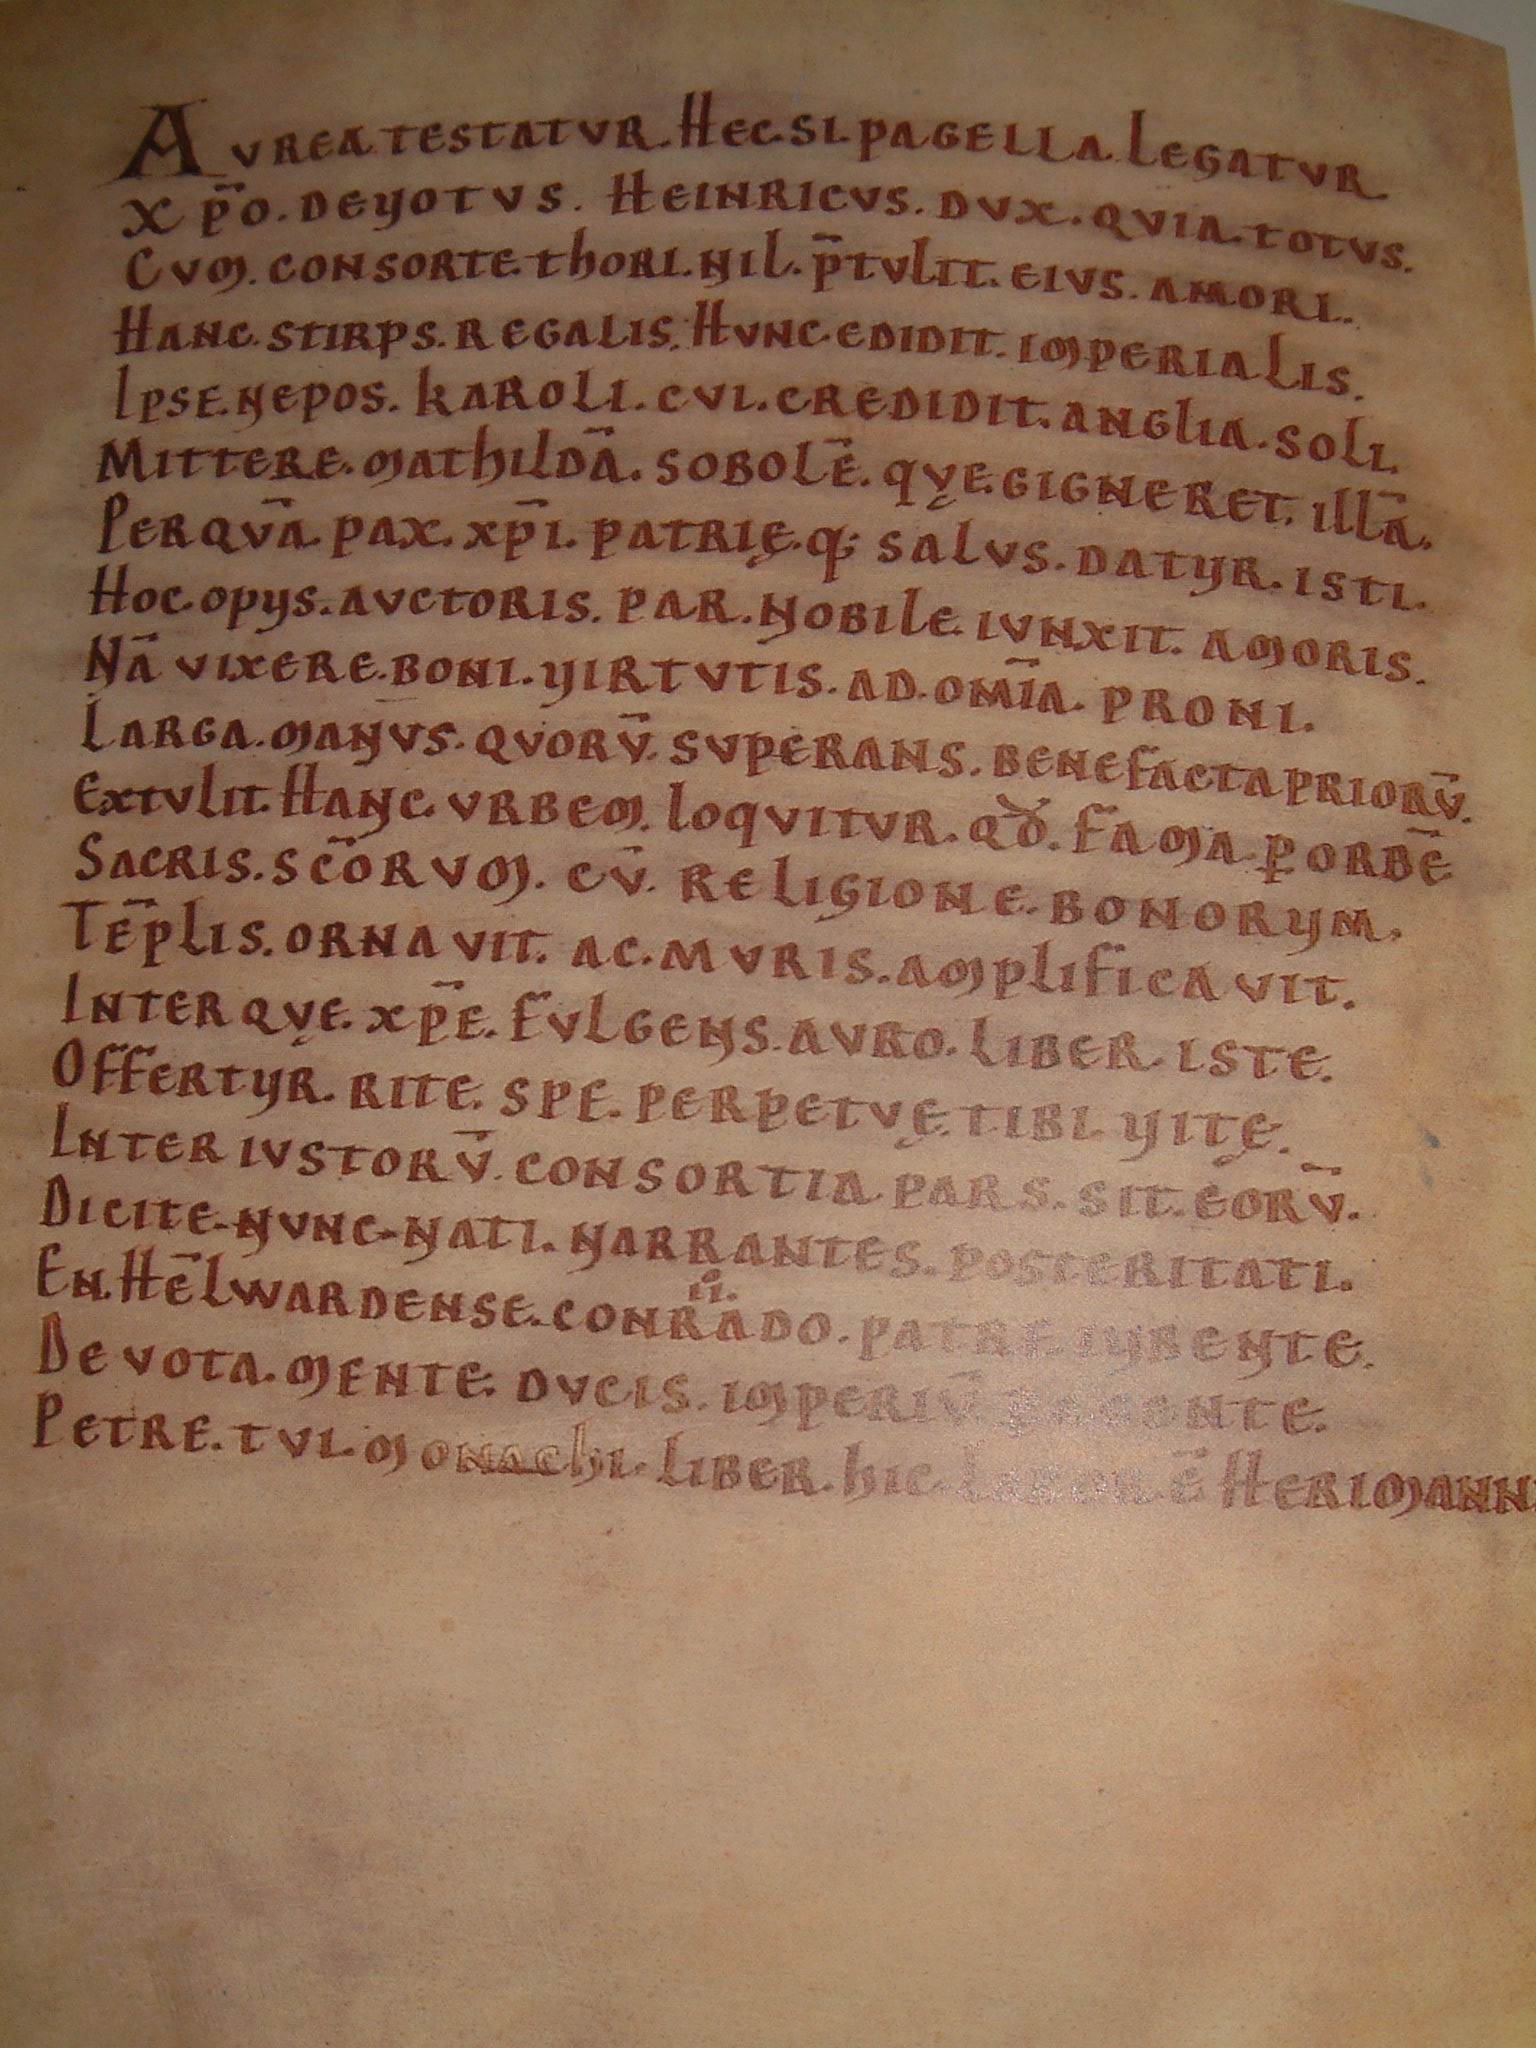 AVREA.TESTATVR.HEC.SI.PAGELLA.LEGATVR
XP̄O.DEVOTVS.HEINRICVS.DVX.QVIA.TOTVS.
CVM.CONSORTE.THORI.NIL.P̄TVLIT.EIVS.AMORI.
HANC.STIRPS.REGALIS.HVNC.EDIDIT.IMPERIALIS.
IPSE.NEPOS.KAROLI.CVI.CREDIDIT.ANGLIA.SOLI.
MITTERE.MATHILDĀ.SOBOLĒ.QVĘ.GIGNERET.ILLĀ.
PER QVĀ.PAX.XP̄I.PATRIĘ.Q; SALVS.DATVR.ISTI.
HOC.OPVS.AVCTORIS.PAR.NOBILE.IVNXIT.AMORIS.
NĀ VIXERE.BONI.VIRTVTIS.AD.OM̄IA.PRONI.
LARGA.MANVS.QVORV̄.SVPERANS.BENEFACTA PRIORV̄.
EXTVLIT.HANC.VRBEM.LOQVITVR.QĐ.FAMA.ꝐORBĒ
SACRIS.SC̄ORVM.CV̄.RELIGIONE.BONORVM.
TĒPLIS.ORNAVIT.AC.MVRIS.AMPLIFICAVIT.
INTER QVĘ.XP̄E.FVLGENS.AVRO.LIBER.ISTE.
OFFERTVR.RITE.SPE.PERPETVĘ.TIBI.VITĘ.
INTER IVSTORV̄.CONSORTIA.PARS.SIT.EORV̄.
DICITE.NVNC.NATI.NARRANTES.POSTERITATI.
EN.HĒLWARDENSE.CONRADO.PATRE.IVBENTE.
DEVOTA.MENTE.DVCIS.IMPERIV̄ PAGENTE.
PETRE.TVI.MONACHI.LIBER.HIC.LABOR.Ē HERIMANNI